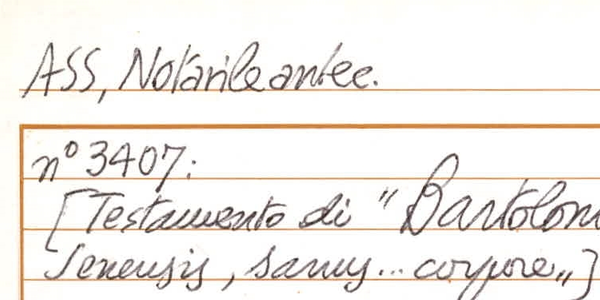 ASS, Notarile antec.
n° 3407:
[Testamento di " Bartolom
Senensis, sanus... corpore„]